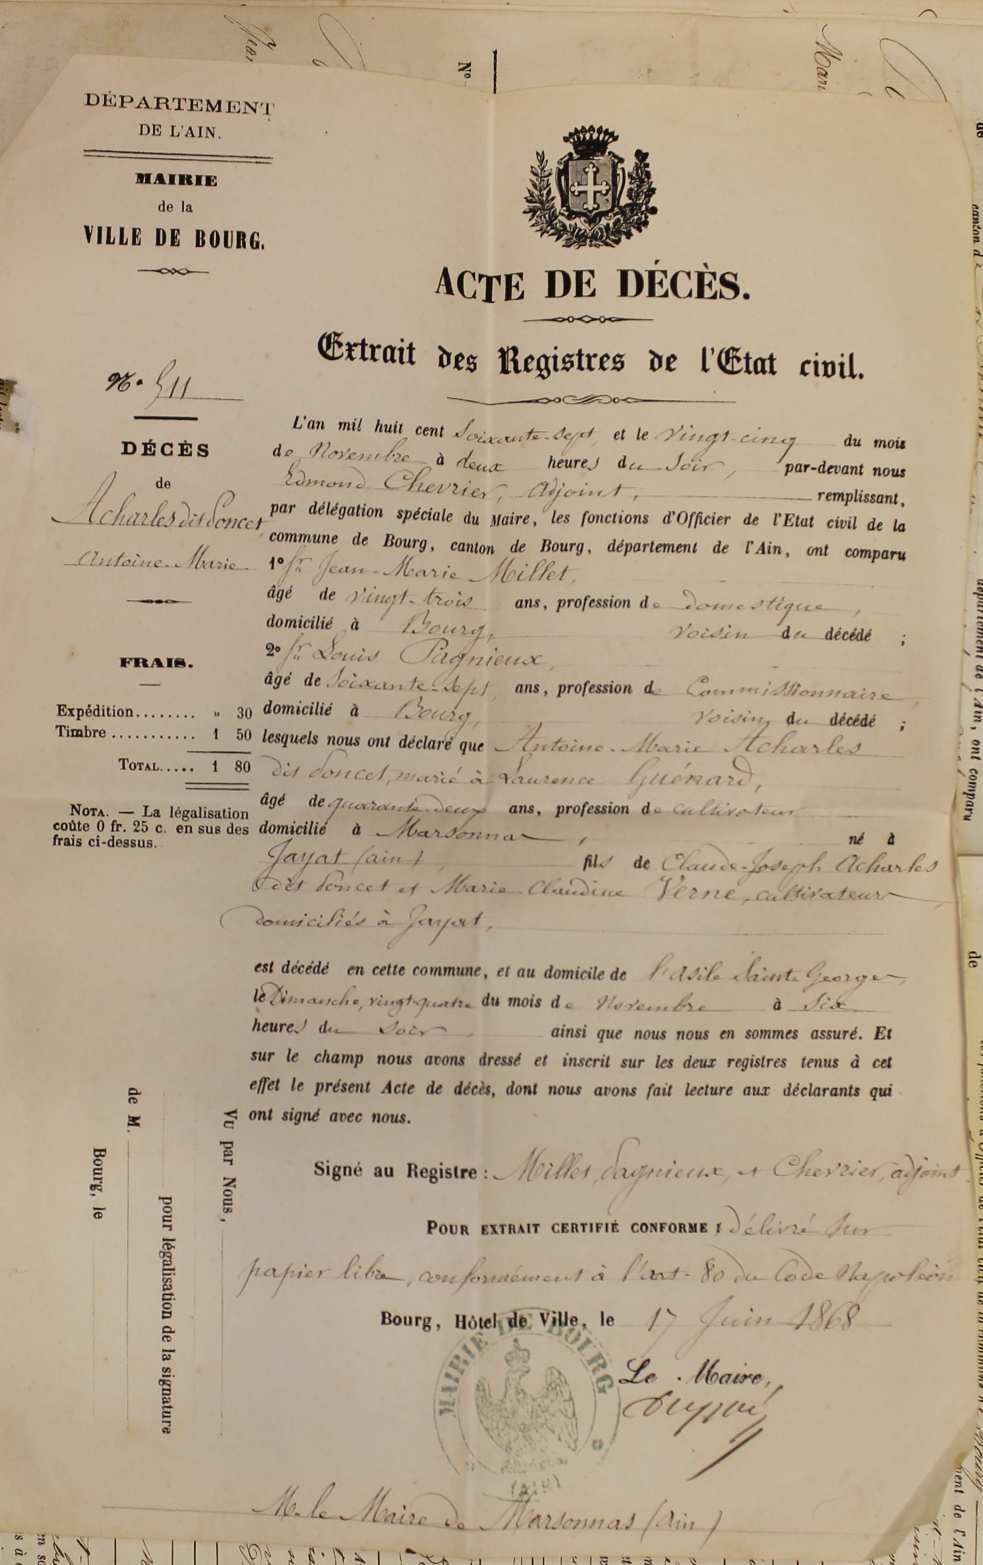 DÉPARTEMENT
DE L'AIN.
MAIRIE
de la
VILLE DE BOURG.
ACTE DE DÉCÈS.
Extrait des Registres de l'Etat civil.
N° 511
DÉCÈS
de
Acharles dit Poncet
Antoine-Marie
FRAIS.
Expédition........ „ 30
Timbre ........... 1 50
TOTAL..... 1 80
NOTA. — La légalisation
coûte 0 fr. 25 c. en sus des
frais ci-dessus.
L'an mil huit cent Soixante-sept, et le vingt-cinq du mois
de Novembre à deux heures du Soir, par-devant nous
Edmond Chevrier, adjoint, remplissant,
par délégation spéciale du Maire, les fonctions d'Officier de l'Etat civil de la
commune de Bourg, canton de Bourg, département de l'Ain, ont comparu
1° sr Jean-Marie Millet,
âgé de vingt-trois ans, profession de domestique,
domicilié à Bourg, voisin du décédé ;
2° sr Louis Pagnieux,
âgé de Soixante-sept ans, profession de Commissionnaire,
domicilié à Bourg, voisin du décédé ;
lesquels nous ont déclaré que Antoine-Marie Acharles
dit Poncet, marié à Laurence Guénard,
âgé de quarante-deux ans, profession de cultivateur
domicilié à Marsonnas, né à
Jayat (ain), fils de Claude-Joseph Acharles
dit Poncet et Marie-Claudine Verne, cultivateurs
domiciliés à Jayat,
est décédé en cette commune, et au domicile de l'asile Saint Georges,
le Dimanche, vingt-quatre du mois de Novembre à Six
heures du Soir ainsi que nous nous en sommes assuré. Et
sur le champ nous avons dressé et inscrit sur les deux registres tenus à cet
effet le présent Acte de décès, dont nous avons fait lecture aux déclarants qui
ont signé avec nous.
Signé au Registre : Millet, Pagnieux, et Chevrier, adjoint
POUR EXTRAIT CERTIFIÉ CONFORME : délivré sur
papier libre, conformément à l'art. 80 du Code Napoléon
Bourg, Hôtel de Ville, le 17 Juin 1868
Le Maire,
MAIRIE DE BOURG
(AIN)
Vu par Nous,
pour légalisation de la signature
de M.
Bourg, le
M. le Maire de Marsonnas (Ain)
N°